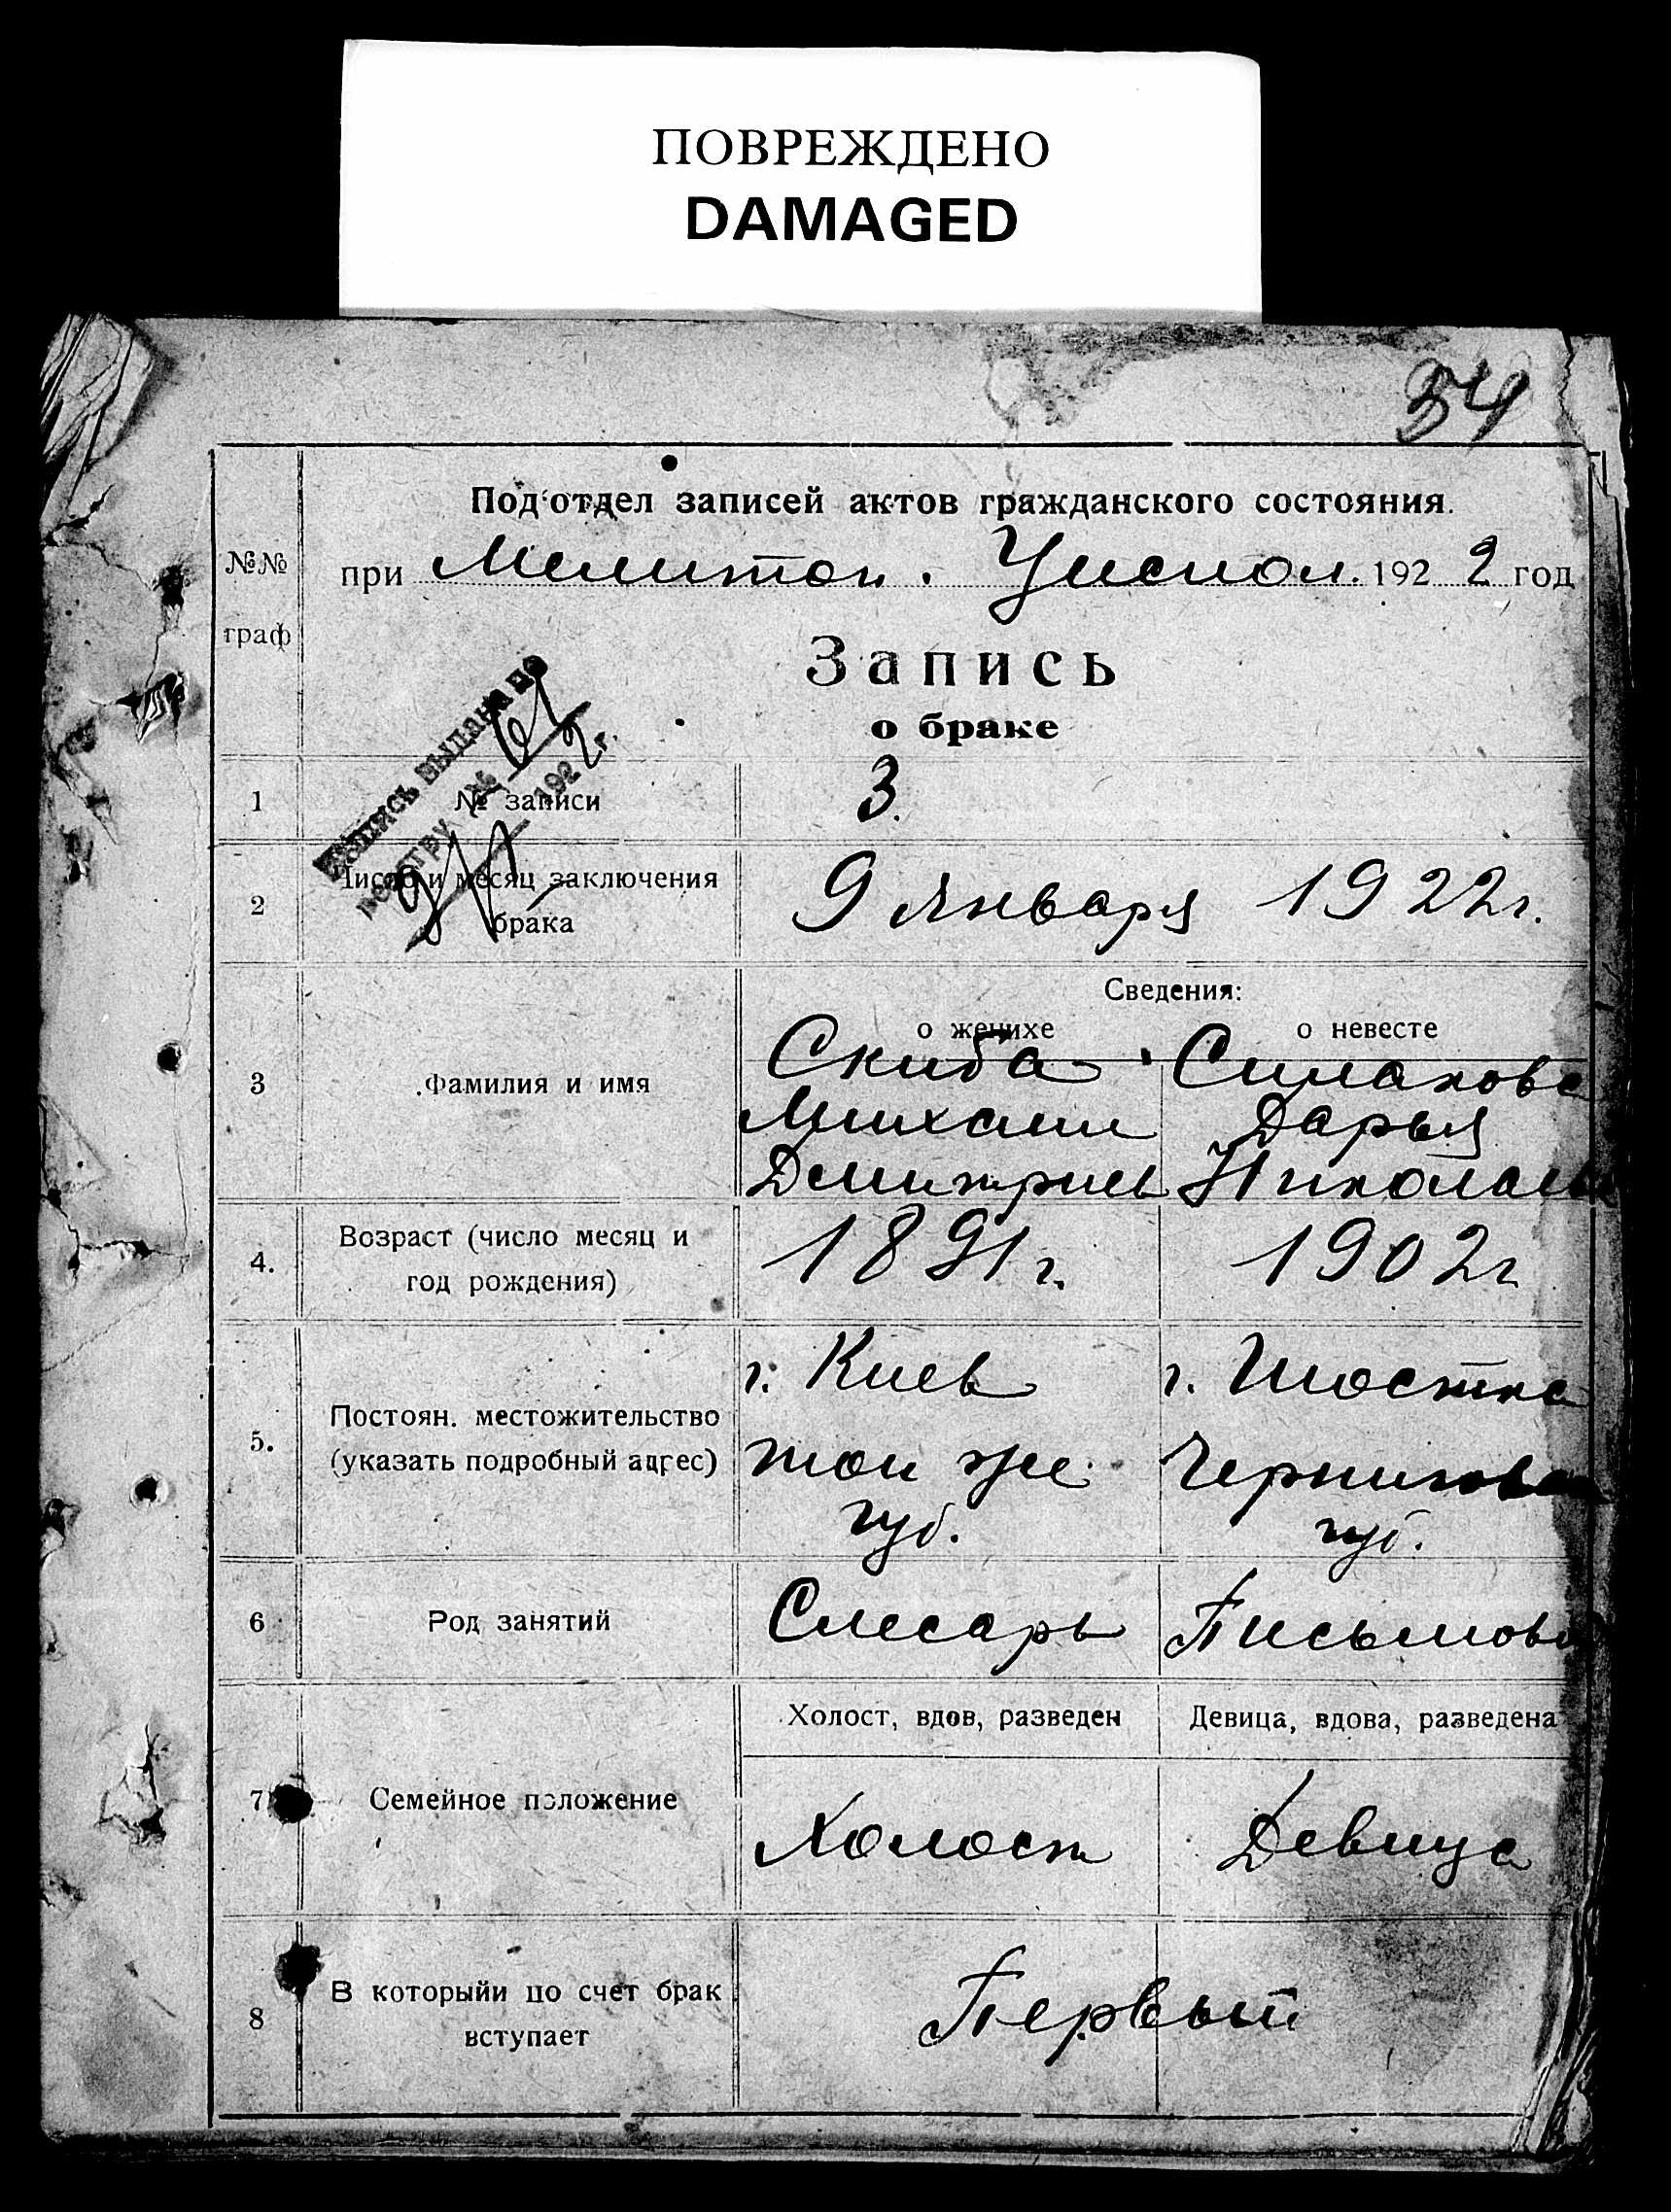 ПОВРЕЖДЕНО
DAMAGED
34
Под'отдел записей актов гражданского состояния.
№№ граф
при Мелитоп. Уиспол. 1922 год
Запись
о браке
Запись выдана по
реестру №
192 2 г.
1 № записи 3.
2 Число и месяц заключения брака 9 Января 1922 г.
Сведения:
о женихе о невесте
3 Фамилия и имя
Скиба Симакова
Михаил Дарья
Дмитриев Николаев
4. Возраст (число месяц и год рождения) 1891 г. 1902 г
5. Постоян. местожительство (указать подробный адрес)
г. Киев г. Шостка
той же Чернигов
губ. губ.
6 Род занятий Слесарь Письмово
Холост, вдов, разведен Девица, вдова, разведена
7 Семейное положение Холост Девица
8 В которыйи по счет брак вступает Первый